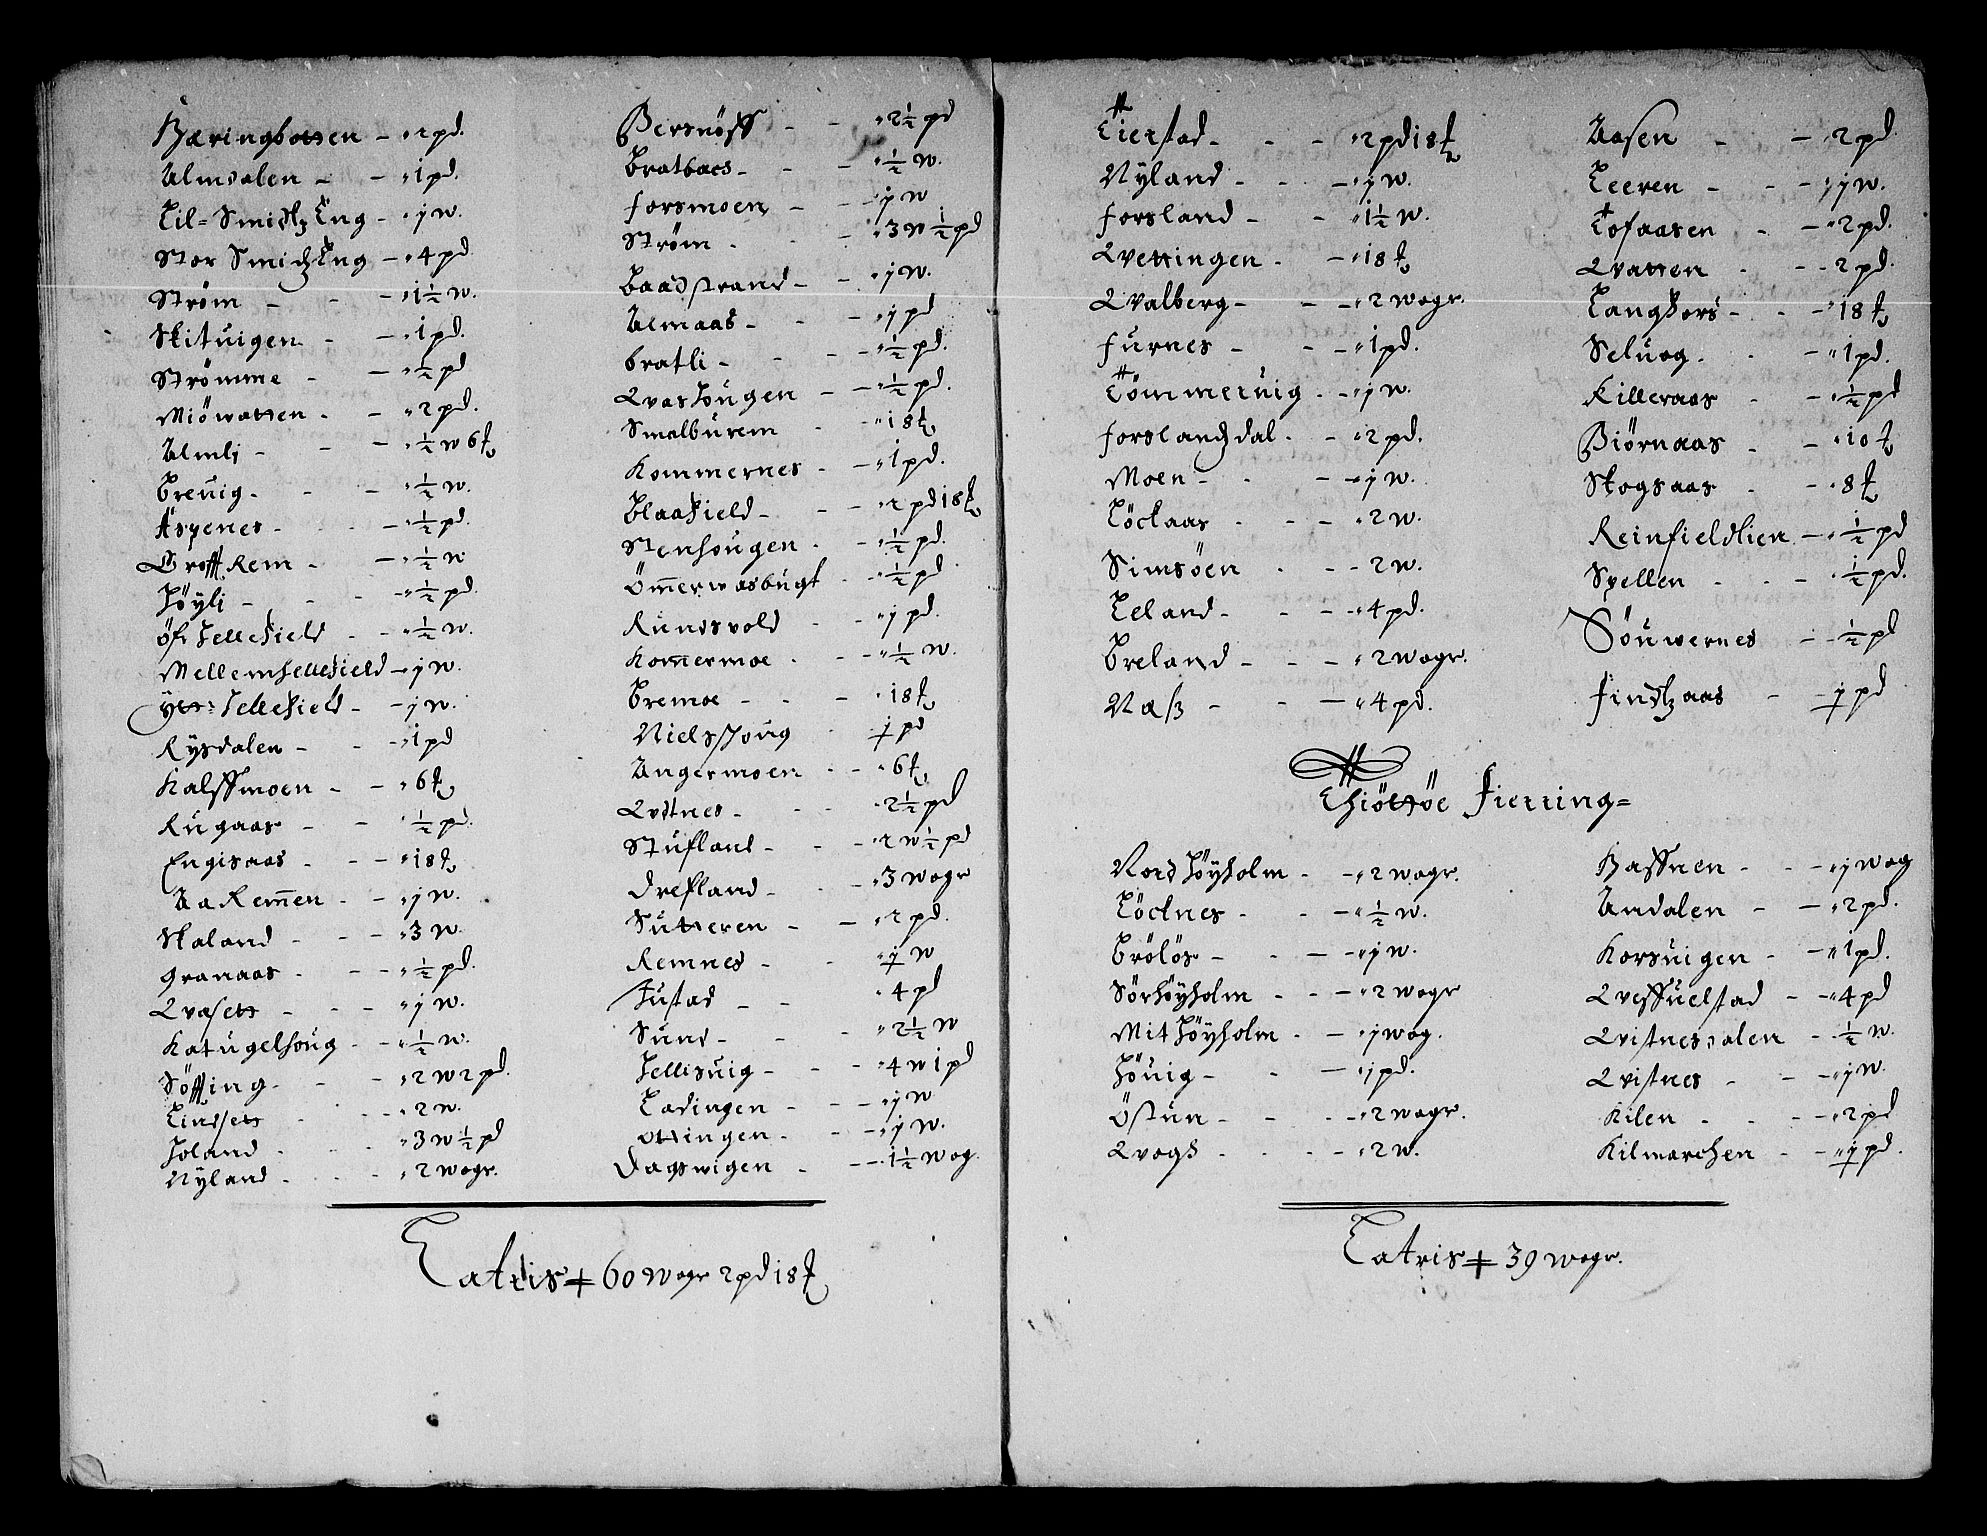 Bæringbotten - 2 pd.
Almdalen - 1 pd.
Lil=Smidtz Eng - j w.
Stor Smidz Eng - 4 pd
Strøm - 1½ w.
Skituigen - 1 pd.
Strømme - ½ pd
Miöwatten - 2 pd.
Almlj - ½ w 6 ℔
Breuig - ½ w.
Aspenes - ½ pd.
Groff Rem - ½ w
Höylj - ½ pd.
öfr Hellefield - ½ w.
Mellemhellefield - j w.
ytr: Hellefield - j w.
Rysdalen - 1 pd
Kalffmoen - 6 ℔
Rugaas - ½ pd.
Engisaas - 18 ℔
Aa Rem̄en - j w.
Skaland - 3 w.
Granaas - ½ pd.
Qvasett - j w.
Katugelhoug - ½ w.
Söffting - 2 w 2 pd.
Lindsett - 2 w.
Holand - 3 w ½ pd
Nyland - 2 wogr.
Bersnöff - 2½ pd
Bratbacs - ½ w.
Forsmoen - j w
Strøm - 3 w ½ pd
Baadstrand - j w.
Almaas - j pd
Bratli - ½ pd.
Qvashougen - ½ pd.
Smalburem - 18 ℔
Kommernes - 1 pd.
Blaafield - 2 pd 18 ℔
Stenhougen - ½ pd.
Öm̄erwasbugt - ½ pd
Rundsvold - j pd.
Kom̄ermoe - ½ w.
Bremoe - 18 ℔
Nielshoug - j pd
Angermoen - 6 ℔
Qvitnes - 2½ pd
Stufland - 2 w ½ pd
Drefland - 3 wogr
Sutteren - 2 pd.
Remnes - j w
Justad - 4 pd
Sund - 2½ w
Hellisuig - 4 w 1 pd
Ladingen - j w
Ottingen - j w.
Dagswigen - 1½ wog.
Latris 60 Wogr 2 pd 18 ℔
Tierstad - 2 pd 18 ℔
Nyland - j w.
Forsland - 1½ w.
Qvettingen - 18 ℔
Qvalberg - 2 wogr.
Furnes - 1 pd.
Tömmeruig - j w.
Forslandzdal - 2 pd.
Moen - j w.
Löckaas - 2 w.
Simsöen - 2 w.
Leland - 4 pd.
Breland - 2 wogr.
Næss - 4 pd.
Aasen - 2 pd
Leeren - j w.
Tofaasen - 2 pd.
Qvatten - 2 pd.
Langhors - 18 ℔
Seluog - 1 pd.
Killeraas - ½ pd
Biörnaas - 10 ℔
Skogsaas - 8 ℔
Reinfieldlien - ½ pd
Spellen - ½ pd.
Söuwernes - ½ pd
Findtzaas - j pd
Thiöttöe Fierring=
Nord Höyholm - 2 wogr.
Löcknes - ½ w.
Brölös - j w.
Sörhöyholm - 2 wogr
Mit Höyholm - j wog.
Höuig - j pd.
Östun - 2 wogr.
Qvogs - 2 w.
Haffnen - j wog
Andalen - 2 pd.
Korsuigen - 1 pd.
Qveffuelstad - 4 pd
Qvistnesdalen - ½ w.
Qvistnes - j w.
Kilen - 2 pd
Kilmarchen - j pd.
Latris 39 wogr.